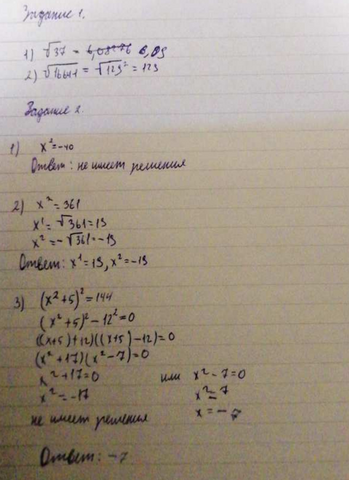 Задание 1.
1) √37 = 6,08276 6,09
2) √16641 = √129² = 129
Задание 2.
1) x² = -40
Ответ: не имеет решения
2) x² = 361
x¹ = √361 = 19
x² = -√361 = -19
Ответ: x¹ = 19, x² = -19
3) (x² + 5)² = 144
(x² + 5)² - 12² = 0
((x+5)+12)((x+5)-12) = 0
(x² + 17)(x² - 7) = 0
x² + 17 = 0 или x² - 7 = 0
x² = -17 x² = 7
не имеет решения x = - 7
Ответ: -7